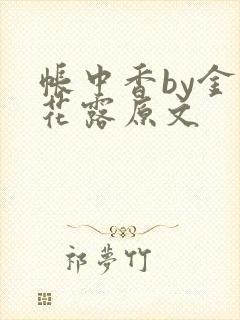 帳中香by金
花露原文
祁夢竹